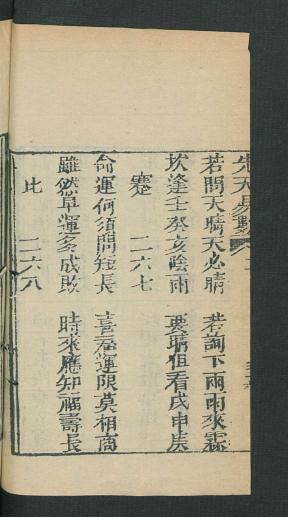 先天易數
若問天晴天必晴 若詢下雨雨來霖
坎逢壬癸亥陰雨 要晴但看戌申庚
蹇 一二六七
命運何須問短長 喜忌運限莫相商
雖然早運多成敗 時來應知福壽長
比 一二六八